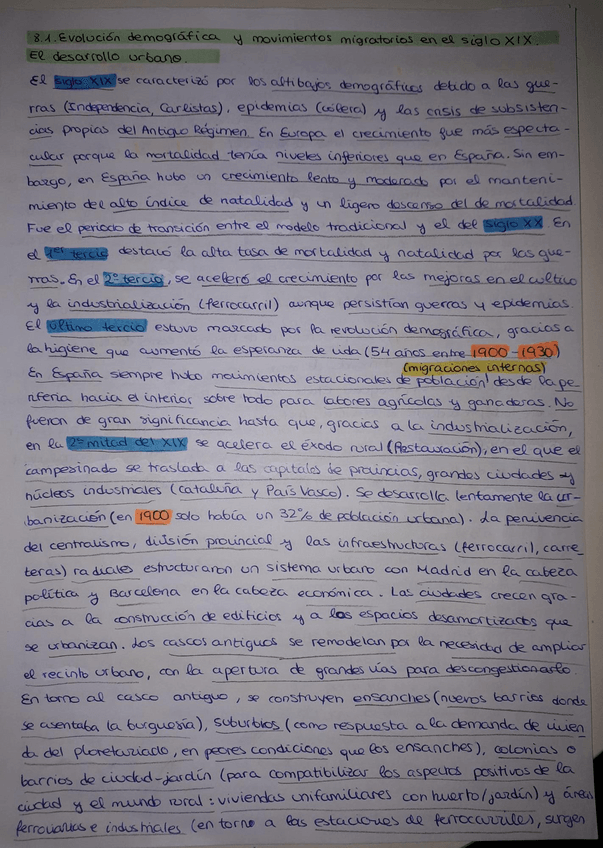 8.1. Evolución demográfica y movimientos migratorios en el siglo XIX.
El desarrollo urbano.
El siglo XIX se caracterizó por los altibajos demográficos debido a las gue-
rras (Independencia, Carlistas), epidemias (cólera) y las crisis de subsisten-
cias propias del Antiguo Régimen. En Europa el crecimiento fue más especta-
cular porque la mortalidad tenía niveles inferiores que en España. Sin em-
bargo, en España hubo un crecimiento lento y moderado por el manteni-
miento del alto índice de natalidad y un ligero descenso del de mortalidad.
Fue el periodo de transición entre el modelo tradicional y el del siglo XX. En
el 1er tercio destacó la alta tasa de mortalidad y natalidad por las gue-
rras. En el 2º tercio, se aceleró el crecimiento por las mejoras en el cultivo
y la industrialización (ferrocarril) aunque persistían guerras y epidemias.
El último tercio estuvo marcado por la revolución demográfica, gracias a
la higiene que aumentó la esperanza de vida (54 años entre 1900-1930)
(migraciones internas)
En España siempre hubo movimientos estacionales de población desde la pe-
riferia hacia el interior sobre todo para labores agrícolas y ganaderas. No
fueron de gran significancia hasta que, gracias a la industrialización,
en la 2ª mitad del XIX se acelera el éxodo rural (Restauración), en el que el
campesinado se traslada a las capitales de provincias, grandes ciudades y
núcleos industriales (Cataluña y País Vasco). Se desarrolla lentamente la ur-
banización (en 1900 solo había un 32% de población urbana). La pervivencia
del centralismo, división provincial y las infraestructuras (ferrocarril, carre-
teras) radiales estructuraron un sistema urbano con Madrid en la cabeza
política y Barcelona en la cabeza económica. Las ciudades crecen gra-
cias a la construcción de edificios y a los espacios desamortizados que
se urbanizan. Los cascos antiguos se remodelan por la necesidad de ampliar
el recinto urbano, con la apertura de grandes vías para descongestionarlo.
En torno al casco antiguo, se construyen ensanches (nuevos barrios donde
se asentaba la burguesía), suburbios (como respuesta a la demanda de vivien-
da del ploretariado, en peores condiciones que los ensanches), colonias o
barrios de ciudad-jardín (para compatibilizar los aspectos positivos de la
ciudad y el mundo rural: viviendas unifamiliares con huerto/jardín) y áreas
ferroviarias e industriales (en torno a las estaciones de ferrocarriles, surgen